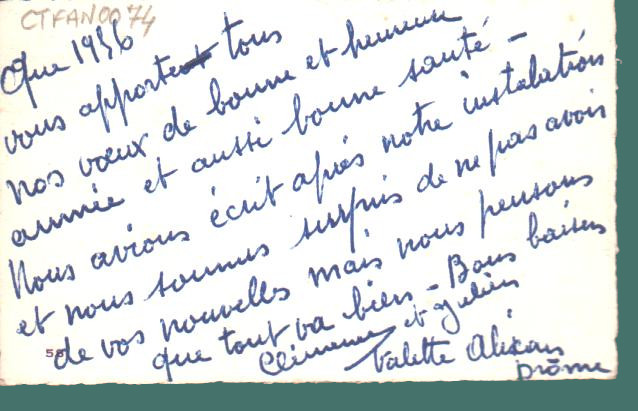 CTFAN0074
Que 1956
vous apporte tous
nos vœux de bonne et heureuse
année et aussi bonne santé -
Nous avions écrit après notre instalation
et nous sommes surpris de ne pas avoir
de vos nouvelles mais nous pensons
que tout va bien - Bons baisers
Clémence et Julien
Valette Alixan
Drôme